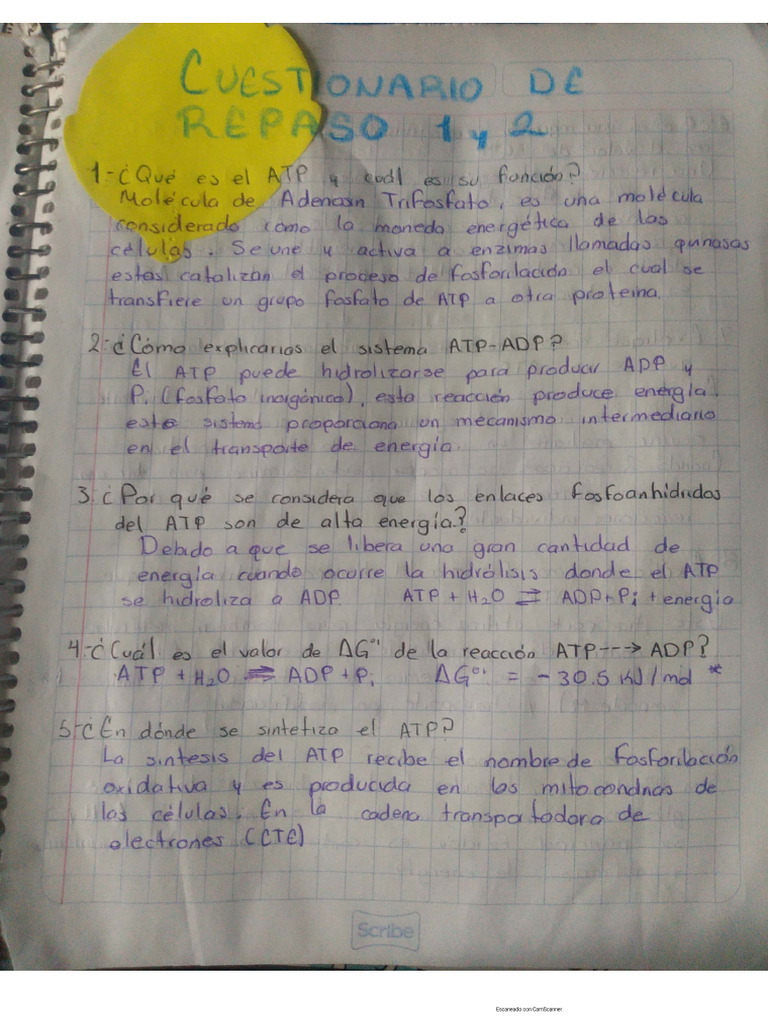 CUESTIONARIO DE
REPASO 1 y 2
1.-¿Qué es el ATP y cuál es su función?
Molécula de Adenosin Trifosfato, es una molécula
considerado como la moneda energética de las
células. Se une y activa a enzimas llamadas quinasas
estas catalizan el proceso de fosforilación el cual se
transfiere un grupo fosfato de ATP a otra proteina.
2.-¿Cómo explicarias el sistema ATP-ADP?
El ATP puede hidrolizarse para producir ADP y
Pi (fosfato inorgánico), esta reacción produce energía.
este sistema proporciona un mecanismo intermediario
en el transporte de energía.
3.¿Por qué se considera que los enlaces fosfoanhidridos
del ATP son de alta energía?
Debido a que se libera una gran cantidad de
energía cuando ocurre la hidrólisis donde el ATP
se hidroliza a ADP. ATP + H2O ⇌ ADP+Pi + energía
4.-¿Cuál es el valor de ΔG°' de la reacción ATP---→ADP?
ATP + H2O ⇌ ADP + Pi ΔG°' = -30.5 KJ/mol *
5-¿En dónde se sintetiza el ATP?
La sintesis del ATP recibe el nombre de Fosforilación
oxidativa y es producida en las mitocondrias de
las células. En la cadena transportadora de
electrones (CTE)
Scribe
Escaneado con CamScanner